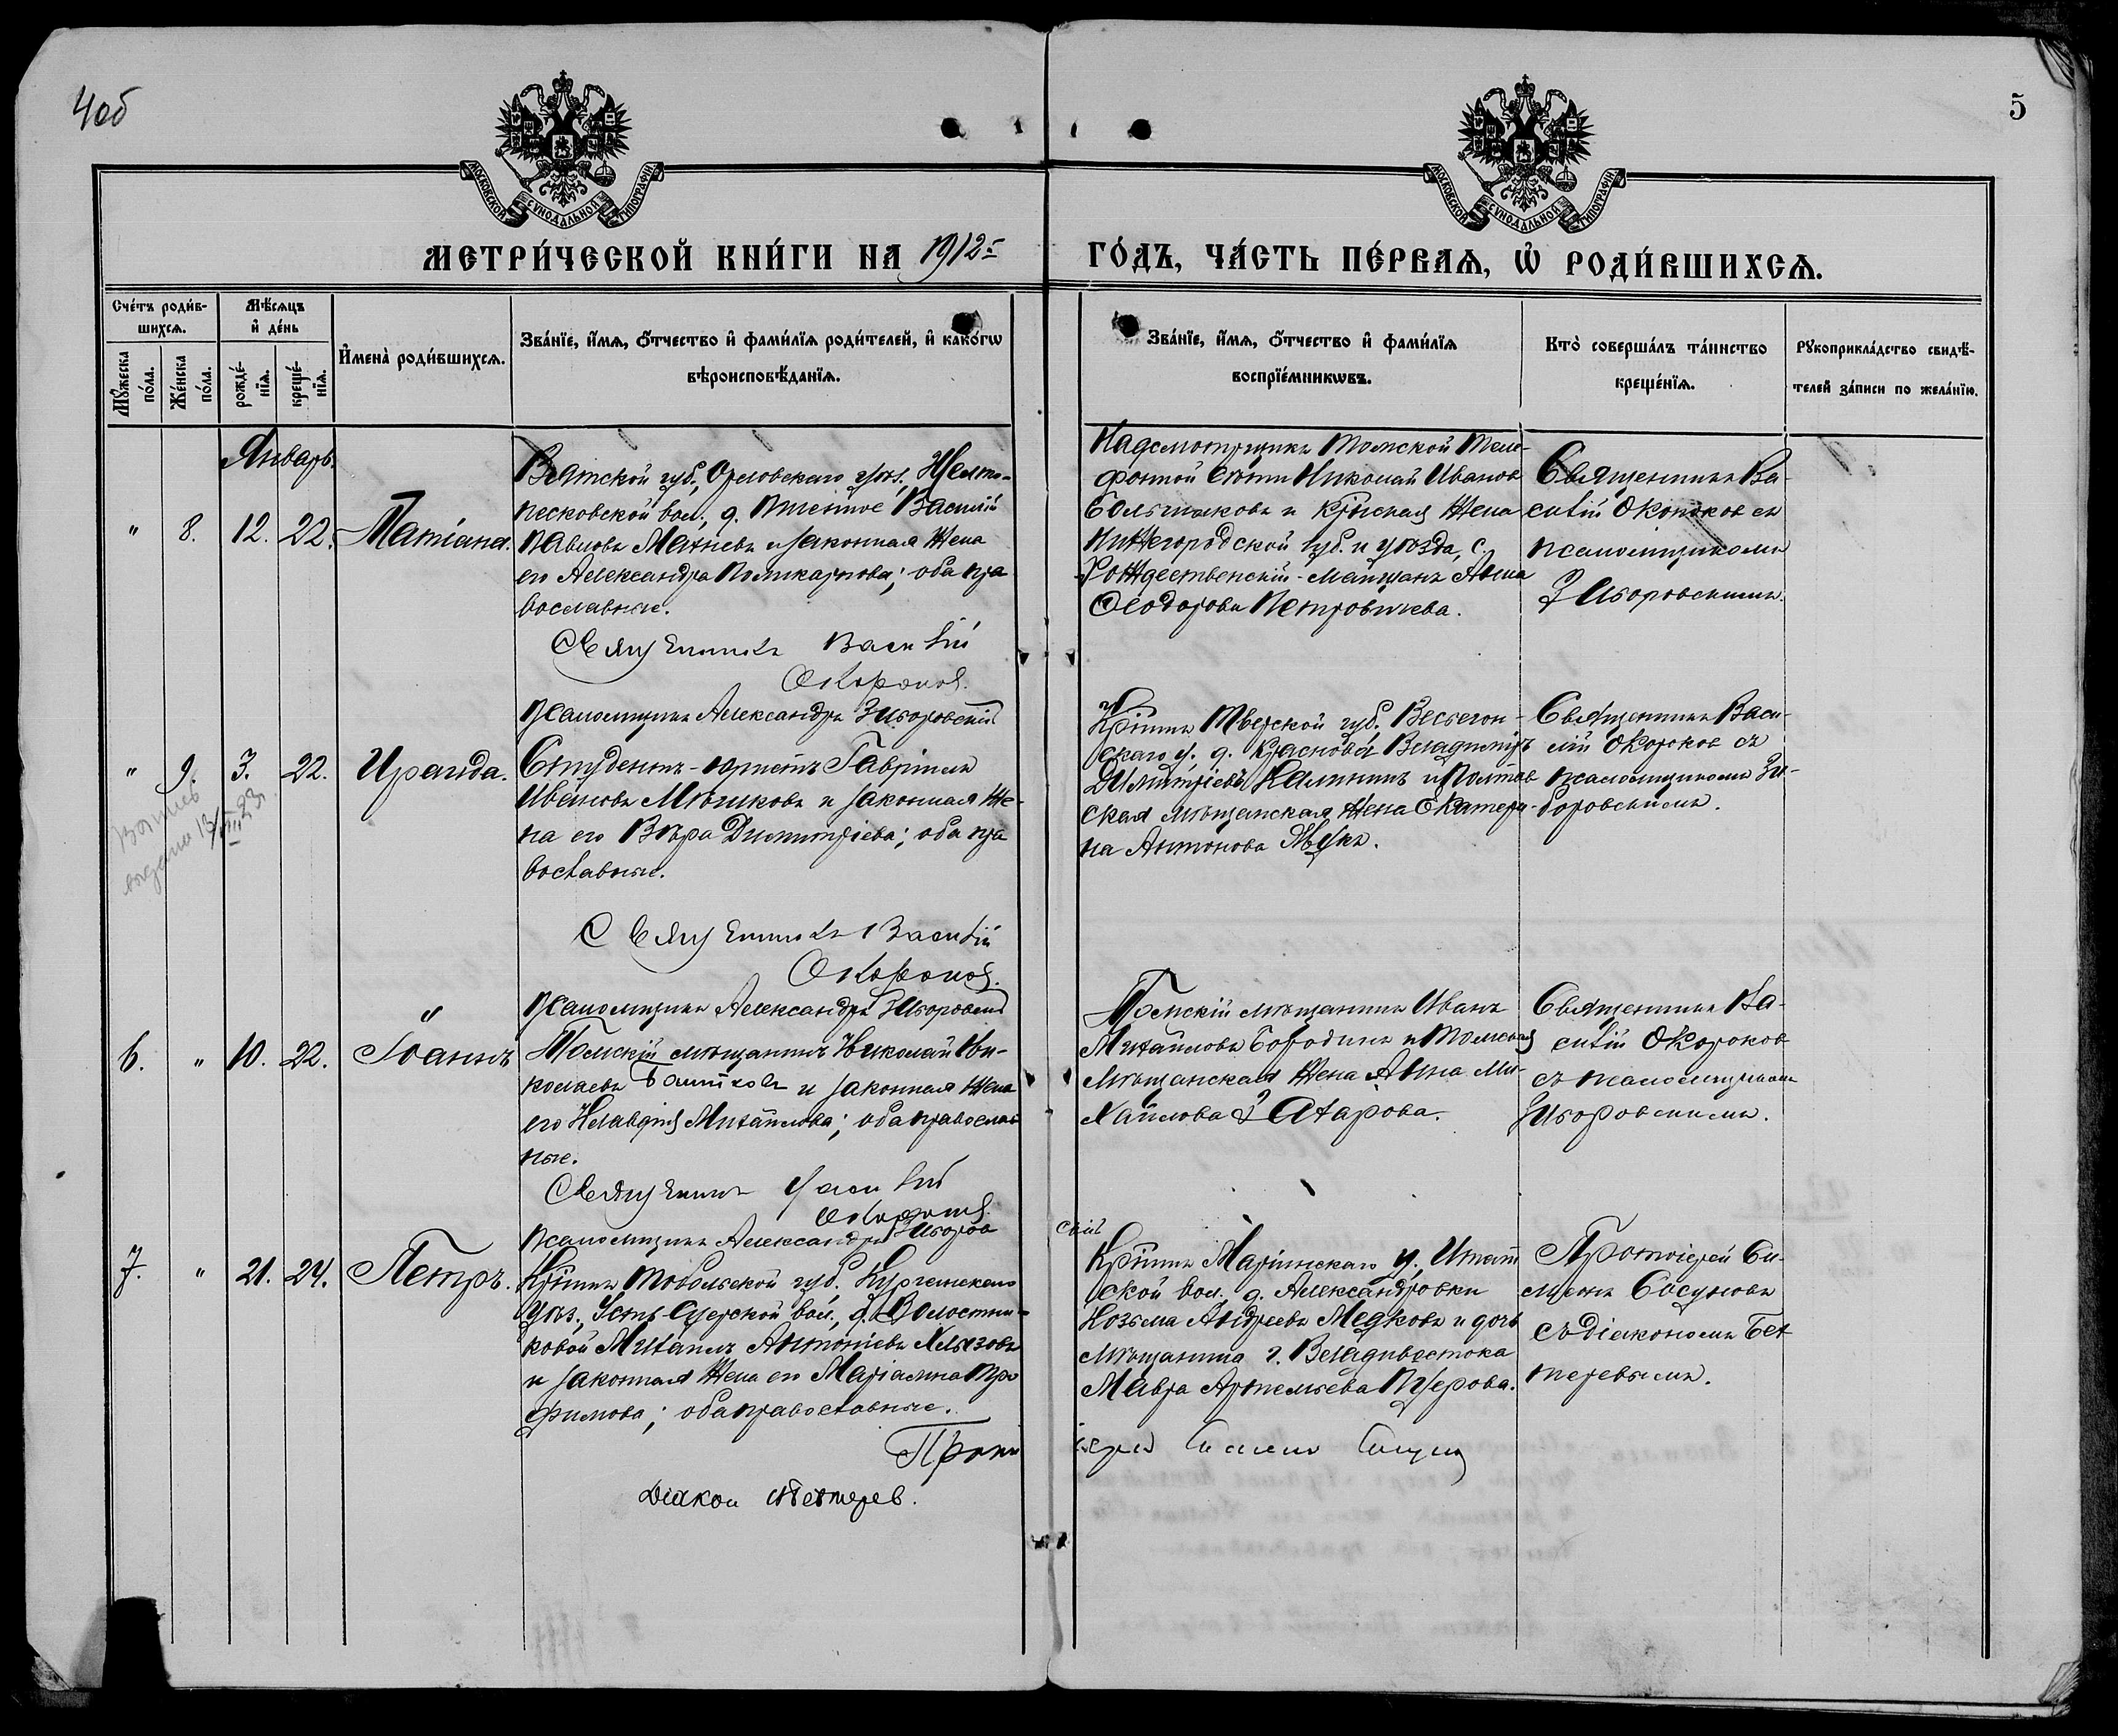 4об
5
МОСКОВСКОЙ СѴНОДАЛЬНОЙ ТИПОГРАФІИ
МОСКОВСКОЙ СѴНОДАЛЬНОЙ ТИПОГРАФІИ
МЕТРИ́ЧЕСКОЙ КНИ́ГИ НА 1912 г.
ГО́ДЪ, ЧА́СТЬ ПЕ́РВАѦ, Ѡ҆ РОДИ́ВШИХСѦ.
Сче́тъ роди́в-
шихсѧ.
Мꙋ́жеска
по́ла.
Же́нска
по́ла.
Мѣ́сѧцъ
и҆ де́нь
рожде́-
нїѧ.
креще́-
нїѧ.
И҆мена̀ роди́вшихсѧ.
Зва́нїе, и҆́мѧ, ѻ҆́тчество и҆ фами́лїѧ роди́телей, и҆ како́гѡ
вѣроисповѣ́данїѧ.
Зва́нїе, и҆́мѧ, ѻ҆́тчество и҆ фами́лїѧ
воспрїе́мникѡвъ.
Кто̀ соверша́лъ та́инство
креще́нїѧ.
Рꙋкоприкла́дство свидѣ́-
телей за́писи по жела́нїю.
Январь.
" 8. 12. 22. Татіана.
Вятской губ., Орловскаго уѣз., Желто-
песковской вол., д.
Василій
Павловъ и законная жена
его Александра Поликарпова; оба пра
вославные.
Священникъ Василій
Окороков.
Псаломщикъ Александръ Зиборовскій
Надсмотрщикъ Томской Теле-
фонной Сѣти Николай Ивановъ
Большаковъ и жена
Нижегородской губ. и уѣзда, с.
Рождественскій-Майданъ Анна
Ѳеодорова
Священникъ Ва-
силій Окороков съ
псаломщикомъ
Зиборовскимъ.
" 9. 3. 22. Ираида.
Студентъ-юристъ Гавріилъ
Ивановъ Мѣшковъ и законная же-
на его Вѣра Димитріева; оба пра
вославные.
Священникъ Василій
Окороков.
Псаломщикъ Александръ Зиборовскій
Кр-нинъ Тверской губ. Весьегон-
скаго у. д. Краснова Владиміръ
Димитріевъ Калининъ и Полтав
ская мѣщанская жена Екатери-
на Антонова
Священникъ Васи-
лій Окороков съ
псаломщикомъ Зи-
боровскимъ.
выдана
6. " 10. 22. Іоаннъ
Томскій мѣщанинъ Николай Ни-
колаевъ и законная жена
его Клавдія Михайлова; оба православ
ные.
Священникъ Василій
Окороков.
Псаломщикъ Александръ Зиборов
скій
Томскій мѣщанинъ Иванъ
Михайловъ Бородинъ и Томская
мѣщанская жена Анна Ми-
хайлова
Священникъ Ва-
силій Окороков
съ псаломщикомъ
Зиборовскимъ.
7. " 21. 24. Петръ.
Кр-нинъ Тобольской губ. Курганскаго
уѣз., Усть-Суерской вол., д. Волостни-
ковой Михаилъ Антоніевъ Хлызовъ
и законная жена его Маріамна Тро
фимова; оба православные.
Прото
іерей Симеон Сосунов
Діакон Бехтерев.
Кр-нинъ Маріинскаго у., Итат
ской вол., д. Александровки
Козьма Андреевъ Медковъ и дочь
мѣщанина г. Владивостока
Мавра Артемьева
Протоіерей Си-
меонъ Сосуновъ
съ діакономъ Бех
теревымъ.